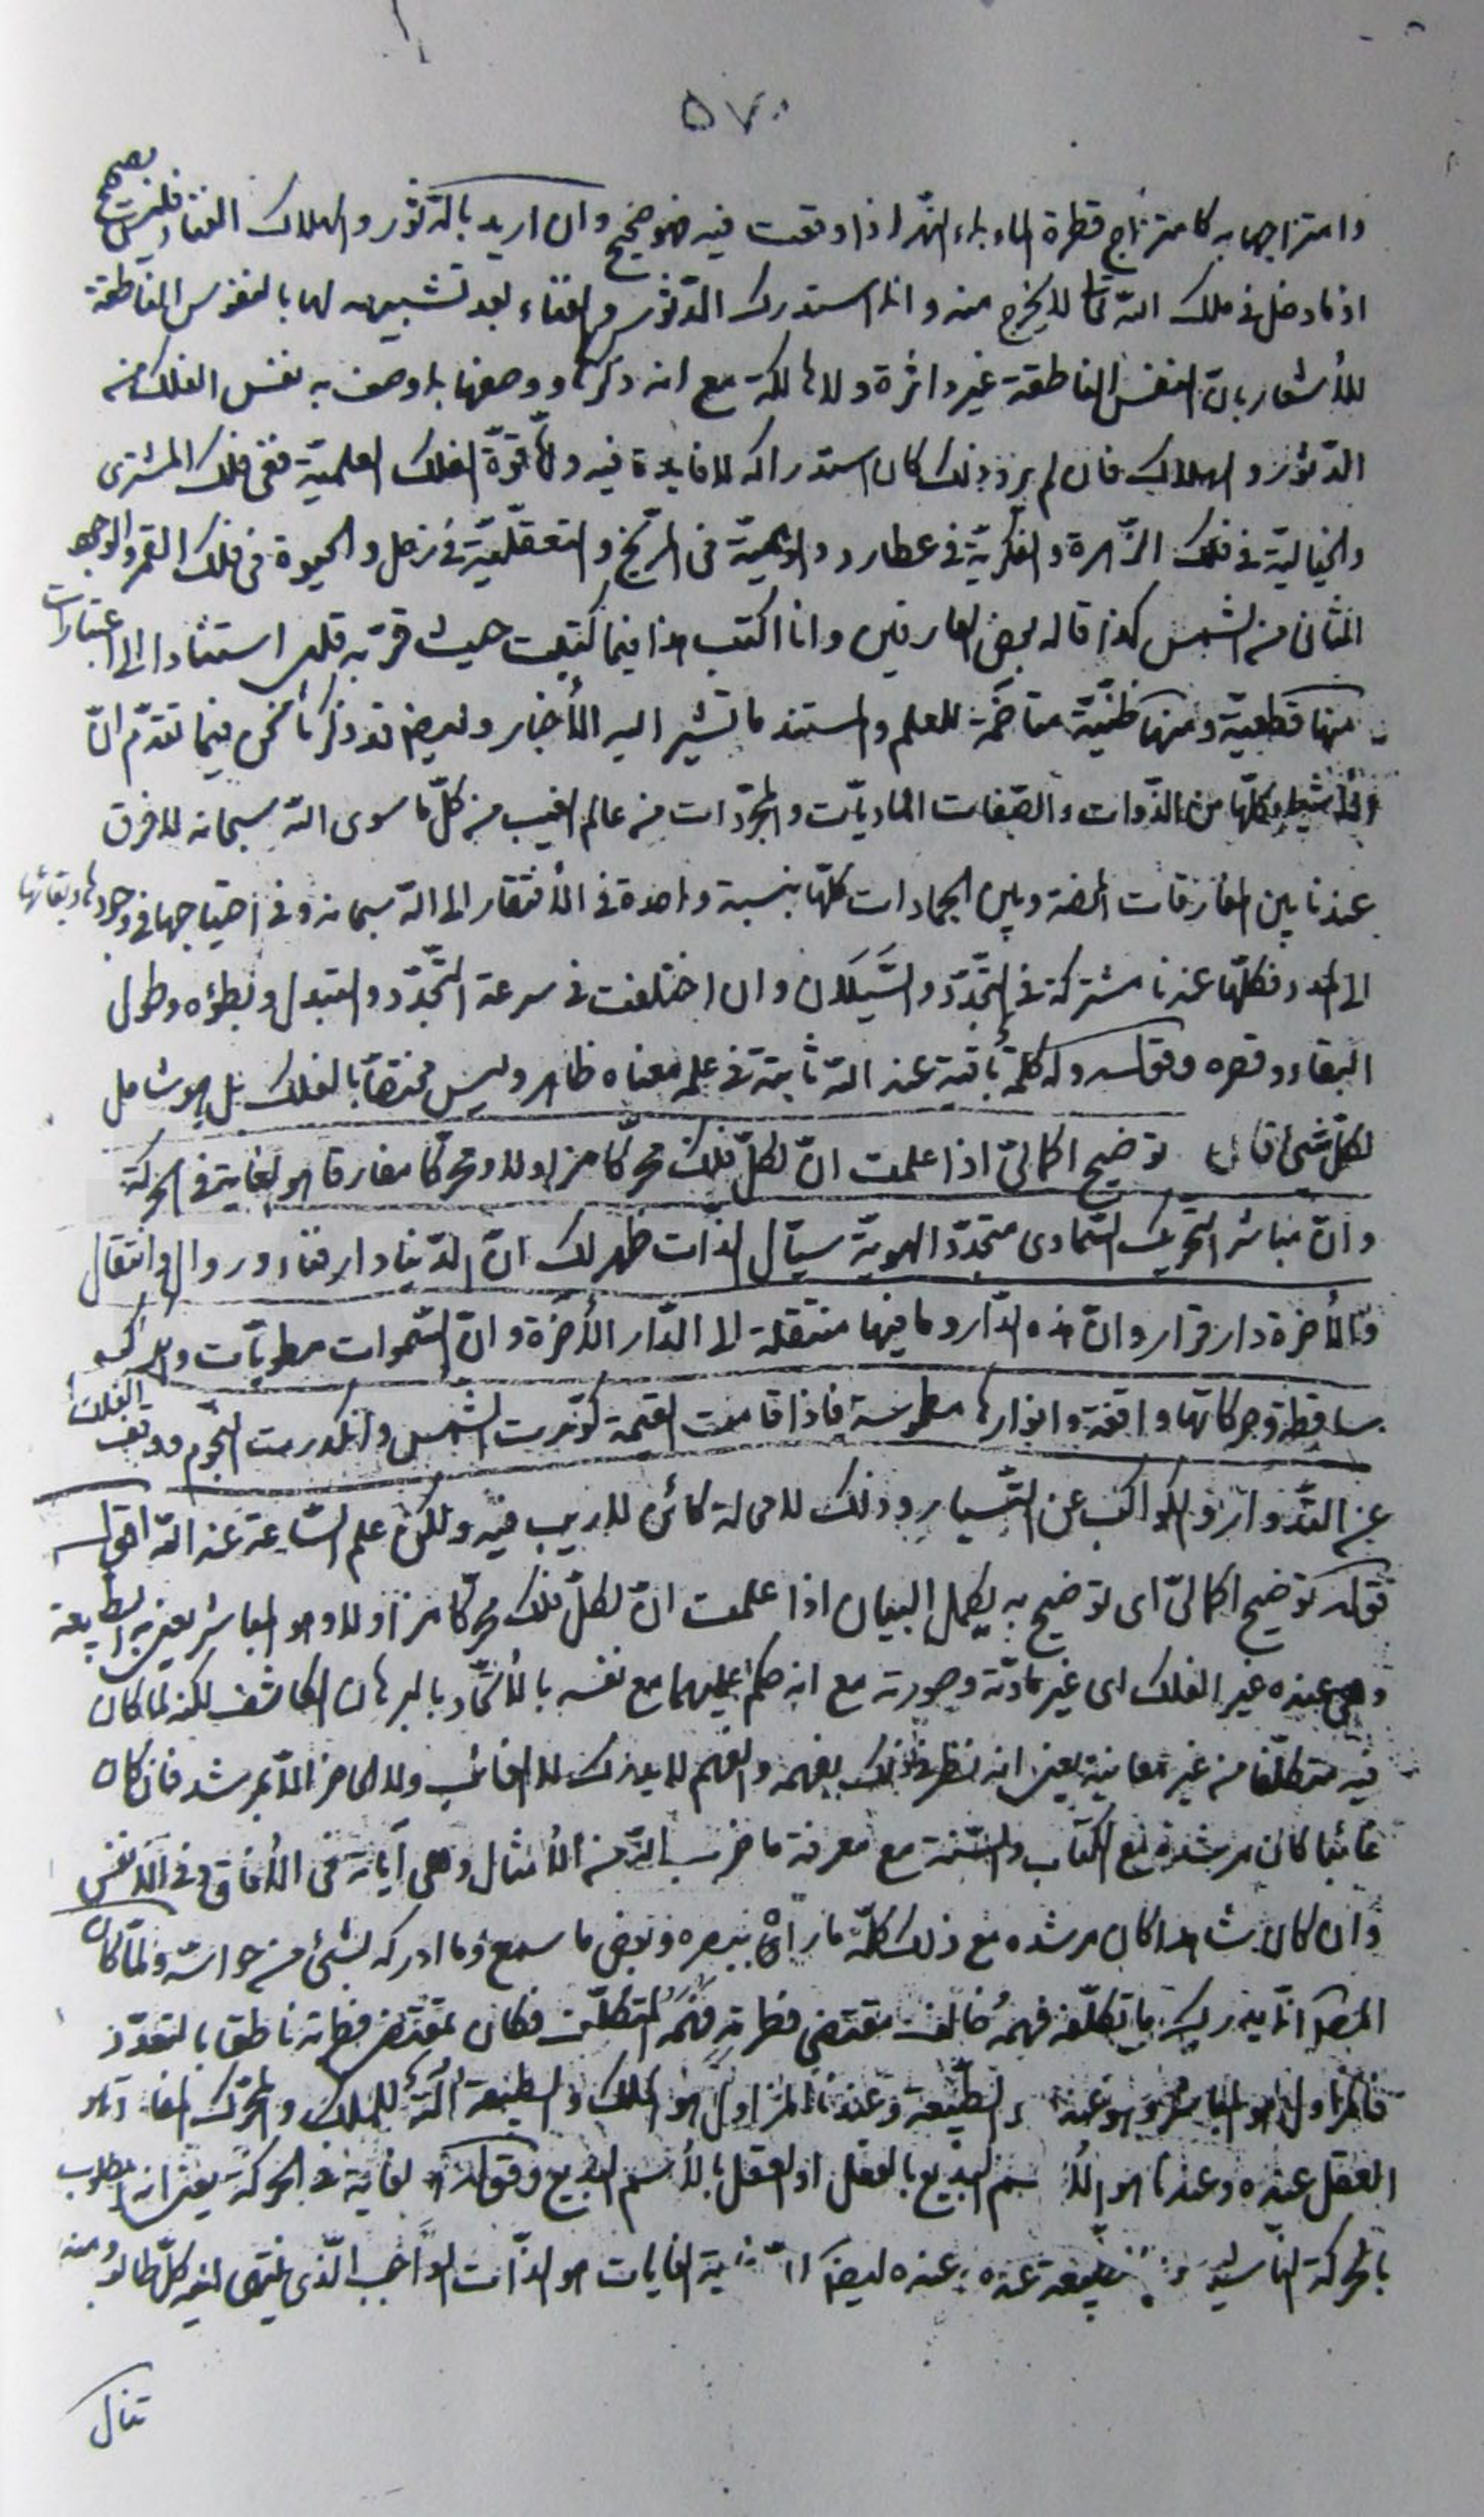 ٥٧٠
وامتزاجها به كامتزاج قطرة الماء بماء النهر اذا وقعت فيه فهو صحيح وان اريد بالدثور والهلاك الفناء فليس بصحيح
اذ ما دخل فى ملك اللّه تعالى لا يخرج منه وانما استدرك الدثور والفناء بعد تشبيهه لها بالنفوس الناطقة
للأشعار بان النفس الناطقة غير داثرة ولا هالكة مع انه ذكرها ووصفها بما وصف به نفس الفلك من
الدثور والهلاك فان لم يرد ذلك كان استدراكه لا فايدة فيه وامّا قوّة الفلك العلميّة ففى فلك المشترى
والخياليّة فى فلك الزّهرة والفكريّة فى عطارد والوهميّة فى المرّيخ والتعقّليّة فى زحل والحيوة فى فلك القمر والوجه
الثانى من الشمس كذا قاله بعض العارفين وانا اكتب هذا فيما كتبت حيث قرّ به قلبى استنادا الى اعتبارات
منها قطعيّة ومنها ظنّيّة متاخمة للعلم والمستند ما تشير اليه الأخبار وايضا قد ذكرنا نحن فيما تقدّم انّ
الأشياء كلّها من الذّوات والصّفات الماديّات والمجرّدات من عالم الغيب من كلّ ما سوى اللّه سبحانه لا فرق
عندنا بين المفارقات المحضة وبين الجمادات كلّها بنسبة واحدة فى الأفتقار الى اللّه سبحانه وفى احتياجها فى وجودها وبقائها
الى المدد فكلّها عندنا مشتركة فى التّجدّد والسّيلان وان اختلفت فى سرعة التّجدّد والتبدل وبطؤه وطول
البقاء وقصره وقوله وله كلمة باقية عند اللّه ثابتة فى علمه معناه ظاهر وليس مختصّا بالفلك بل هو شامل
لكلّ شىء قال توضيح اكمالىّ اذا علمت انّ لكلّ فلك محرّكا مزاولا ومحرّكا مفارقا هو لغاية فى الحركة
وانّ مباشر التّحريك السّماوى متجدّد الهويّة سيّال الذّات ظهر لك انّ الدّنيا دار فناء وزوال وانتقال
والأخرة دار قرار وانّ هذه الدّار وما فيها منتقلة الى الدّار الأخرة وانّ السّموات مطويّات والكواكب
ساقطة وحركاتها واقفة وانوارها مطموسة فاذا قامت القيمة كوّرت الشّمس وانكدرت النّجوم ووقف الفلك
عن الدّوار والكواكب عن التّسيار وذلك لا محالة كائن لا ريب فيه ولكن علم السّاعة عند اللّه اقول
قوله توضيح اكمالىّ اى توضيح به يكمل البيان اذا علمت انّ لكلّ فلك محرّكا مزاولا وهو المباشر يعنى به الطّبيعة
وهى عنده غير الفلك اى غير مادّته وصورته مع انه حكم عليهما مع نفسه بالأتّحاد بالبرهان الكاشف لكنه لمّا كان
فيه متكلّفا من غير معاينة يعنى انه نظر فى ذلك بفهمه والفهم لا يدرك لا الغائب ولا الحاضر الّا بمرشد فان كان
غائبا كان مرشده مع الكتاب والسّنّة مع معرفة ما ضرب اللّه من الأمثال وهى آياته فى الأفاق وفى الأنفس
وان كان شاهدا كان مرشده مع ذلك كلّه ما رآه ببصره وبعض ما سمع وما ادركه بشىء من حواسّه ولمّا كان
المصنّف انّما يدرك ما تكلّفه فهمه خالف مقتضى فطرته فهمه المتكلّف فكان بمقتضى فطرته ناطق بالتعدّد
فالمزاول هو المباشر وهو عنده الطّبيعة وعندنا المزاول هو الملك والطبيعة آلة للملك والمحرّك المفارق هو
العقل عنده وعندنا هو الأسم البديع بالفعل او العقل بالأسم البديع وقوله هو لغاية فى الحركة يعنى انه المطلوب
بالحركة عنده ايضا الغايات هو الذّات الواجب الّذى ينتهى اليه كلّ طالب ومنه
تنال